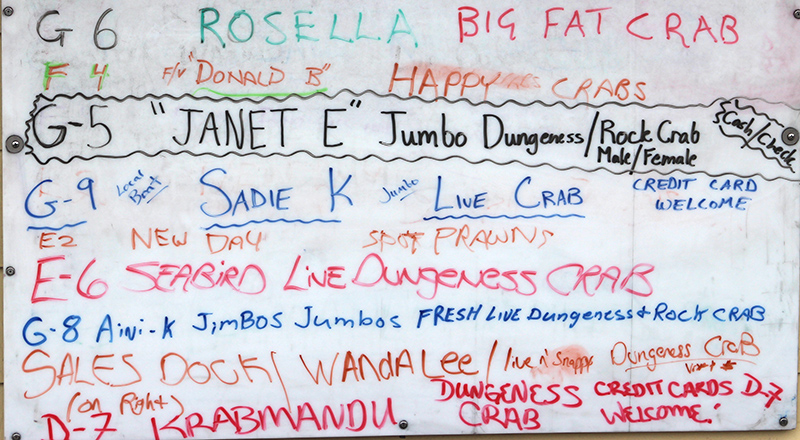 G 6 ROSELLA BIG FAT CRAB
F 4 F/V "DONALD B" HAPPY CRABS
G-5 "JANET E" Jumbo Dungeness/Rock Crab Male/Female Cash/Check
G-9 Local Boat SADIE K Jumbo LIVE CRAB CREDIT CARD WELCOME
E2 NEW DAY SPOT PRAWNS
E-6 SEABIRD LIVE DUNGENESS CRAB
G-8 Aini-K JimBOS Jumbos FRESH LIVE Dungeness + Rock CRAB
SALES DOCK/ WANDA Lee/ live n' snappy Dungeness CraB
(on Right)
D-7 KRABMANDU DUNGENESS CRAB CREDIT CARDS WELCOME! D-7